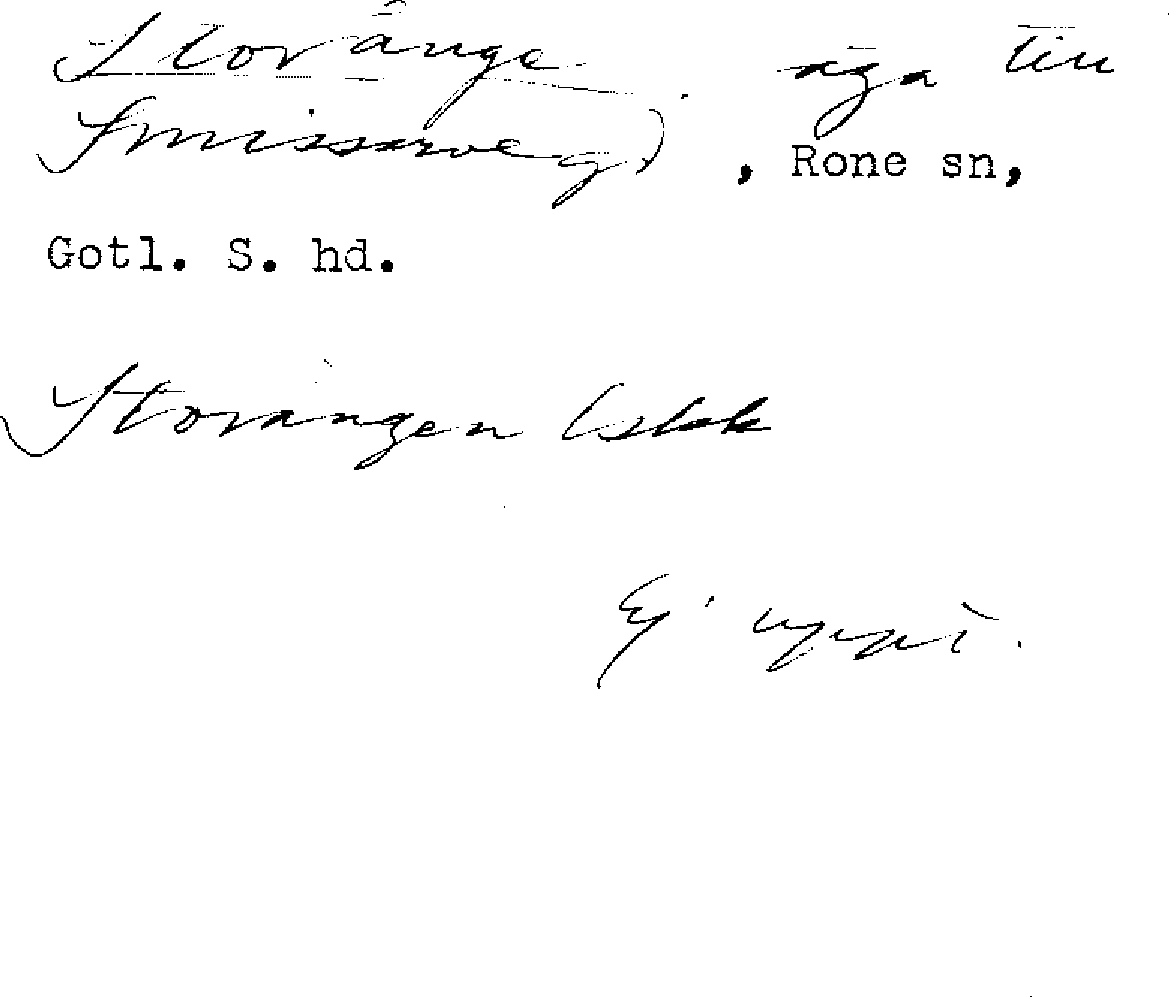 Storänge äga till
Smissarve g) , Rone sn,
Gotl. S. hd.
Storängen lskk
Ej uppt.